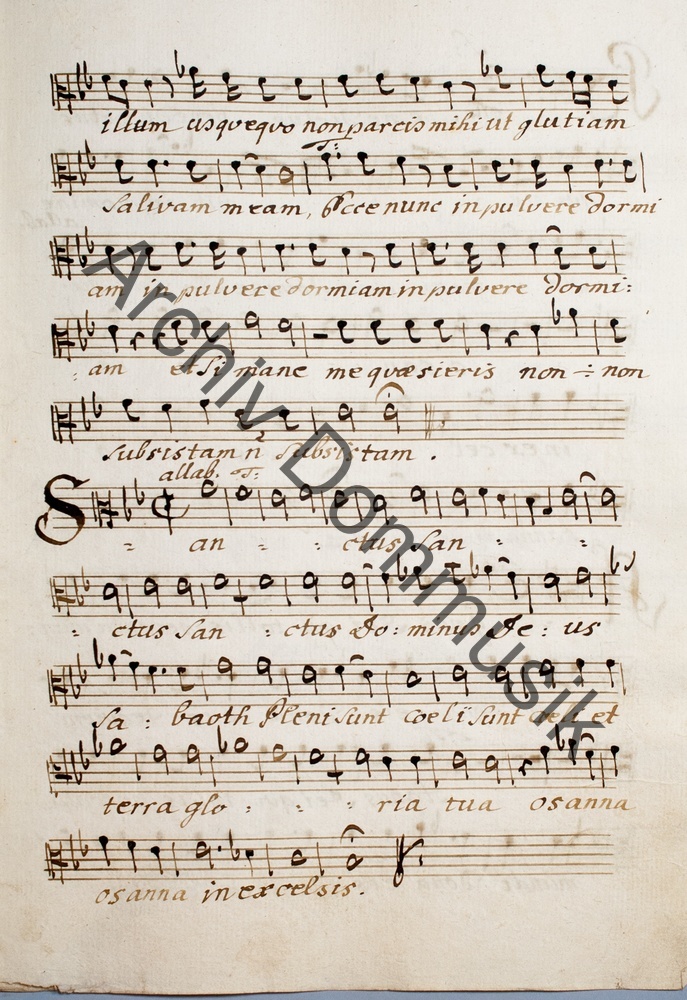 illum usquequo non parcis mihi ut glutiam
T:
salivam meam, Ecce nunc in pulvere dormi
am in pulvere dormiam in pulvere dormi:
: am et si mane me quæsieris non ÷ non
subsistam n̄ subsistam.
allab. T:
San : : ctus san : :
: ctus san : ctus Do: minus De: us
Sa : baoth Pleni sunt coeli sunt coeli et
terra glo : : : ria tua osanna
osanna in excelsis.
Archiv Dommusik